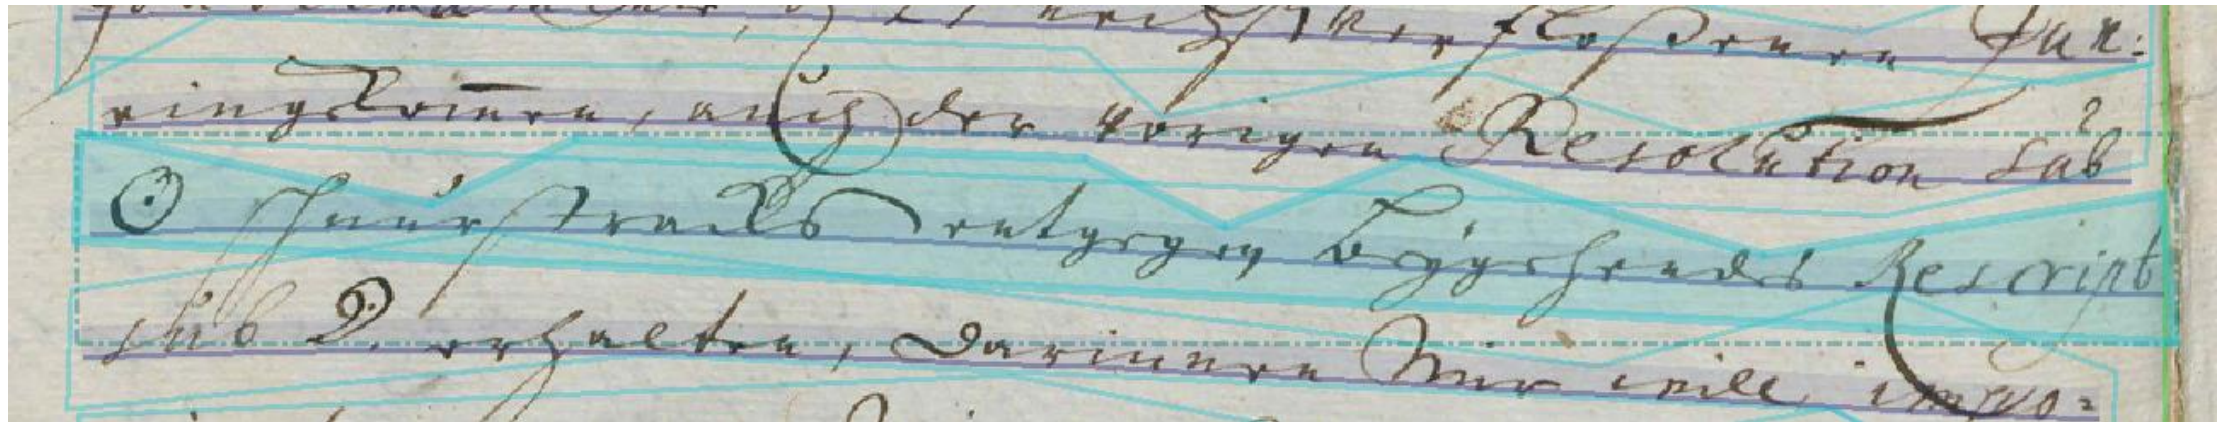 verfloßenen Jan:
eingekom̅en, auch der vorigen Resolution sub
⊙ schnurstracks entgegen beÿgehendes Rescript
sub D. erhalten, darinnen mir will impo-